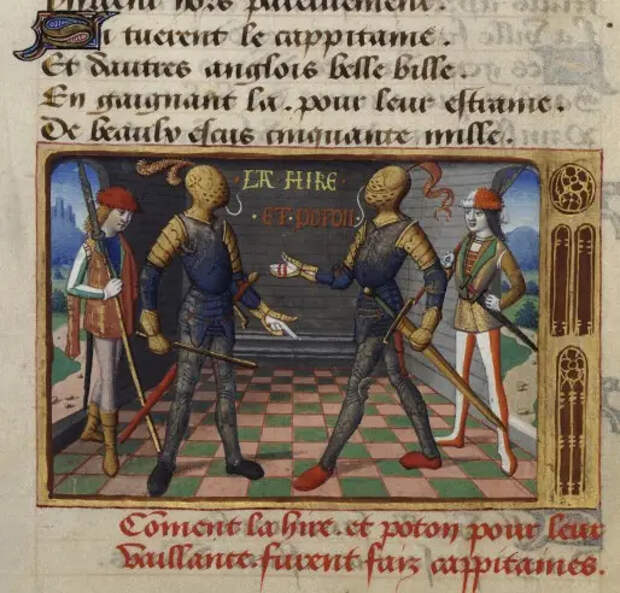 Si tuerent le cappitaine.
Et dautres anglois belle bille.
En gaignant la. pour leur estraine.
De beaulx escus cinquante mille.
LA HIRE
ET POTON
Cōment la hire. et poton pour leur
vaillance. furent faiz cappitaines.